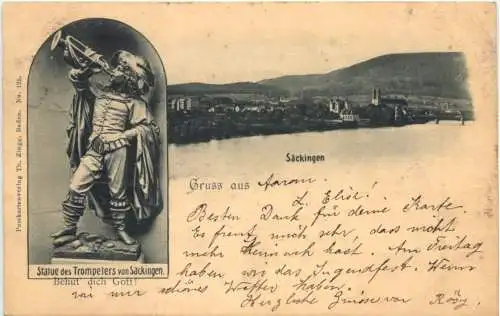 Postkartenverlag Th. Zingg, Baden. No. 125.
Säckingen
Gruss aus Aarau.
L. Elise!
Besten Dank für deine Karte.
Es freut mich sehr, dass nicht
mehr Heimweh hast. Am Freitag
haben wir das Jugendfest. Wenn
wir nur schönes Wetter haben.
Herzliche Grüsse von Rösy
Statue des Trompeters von Säckingen.
Behüt dich Gott!